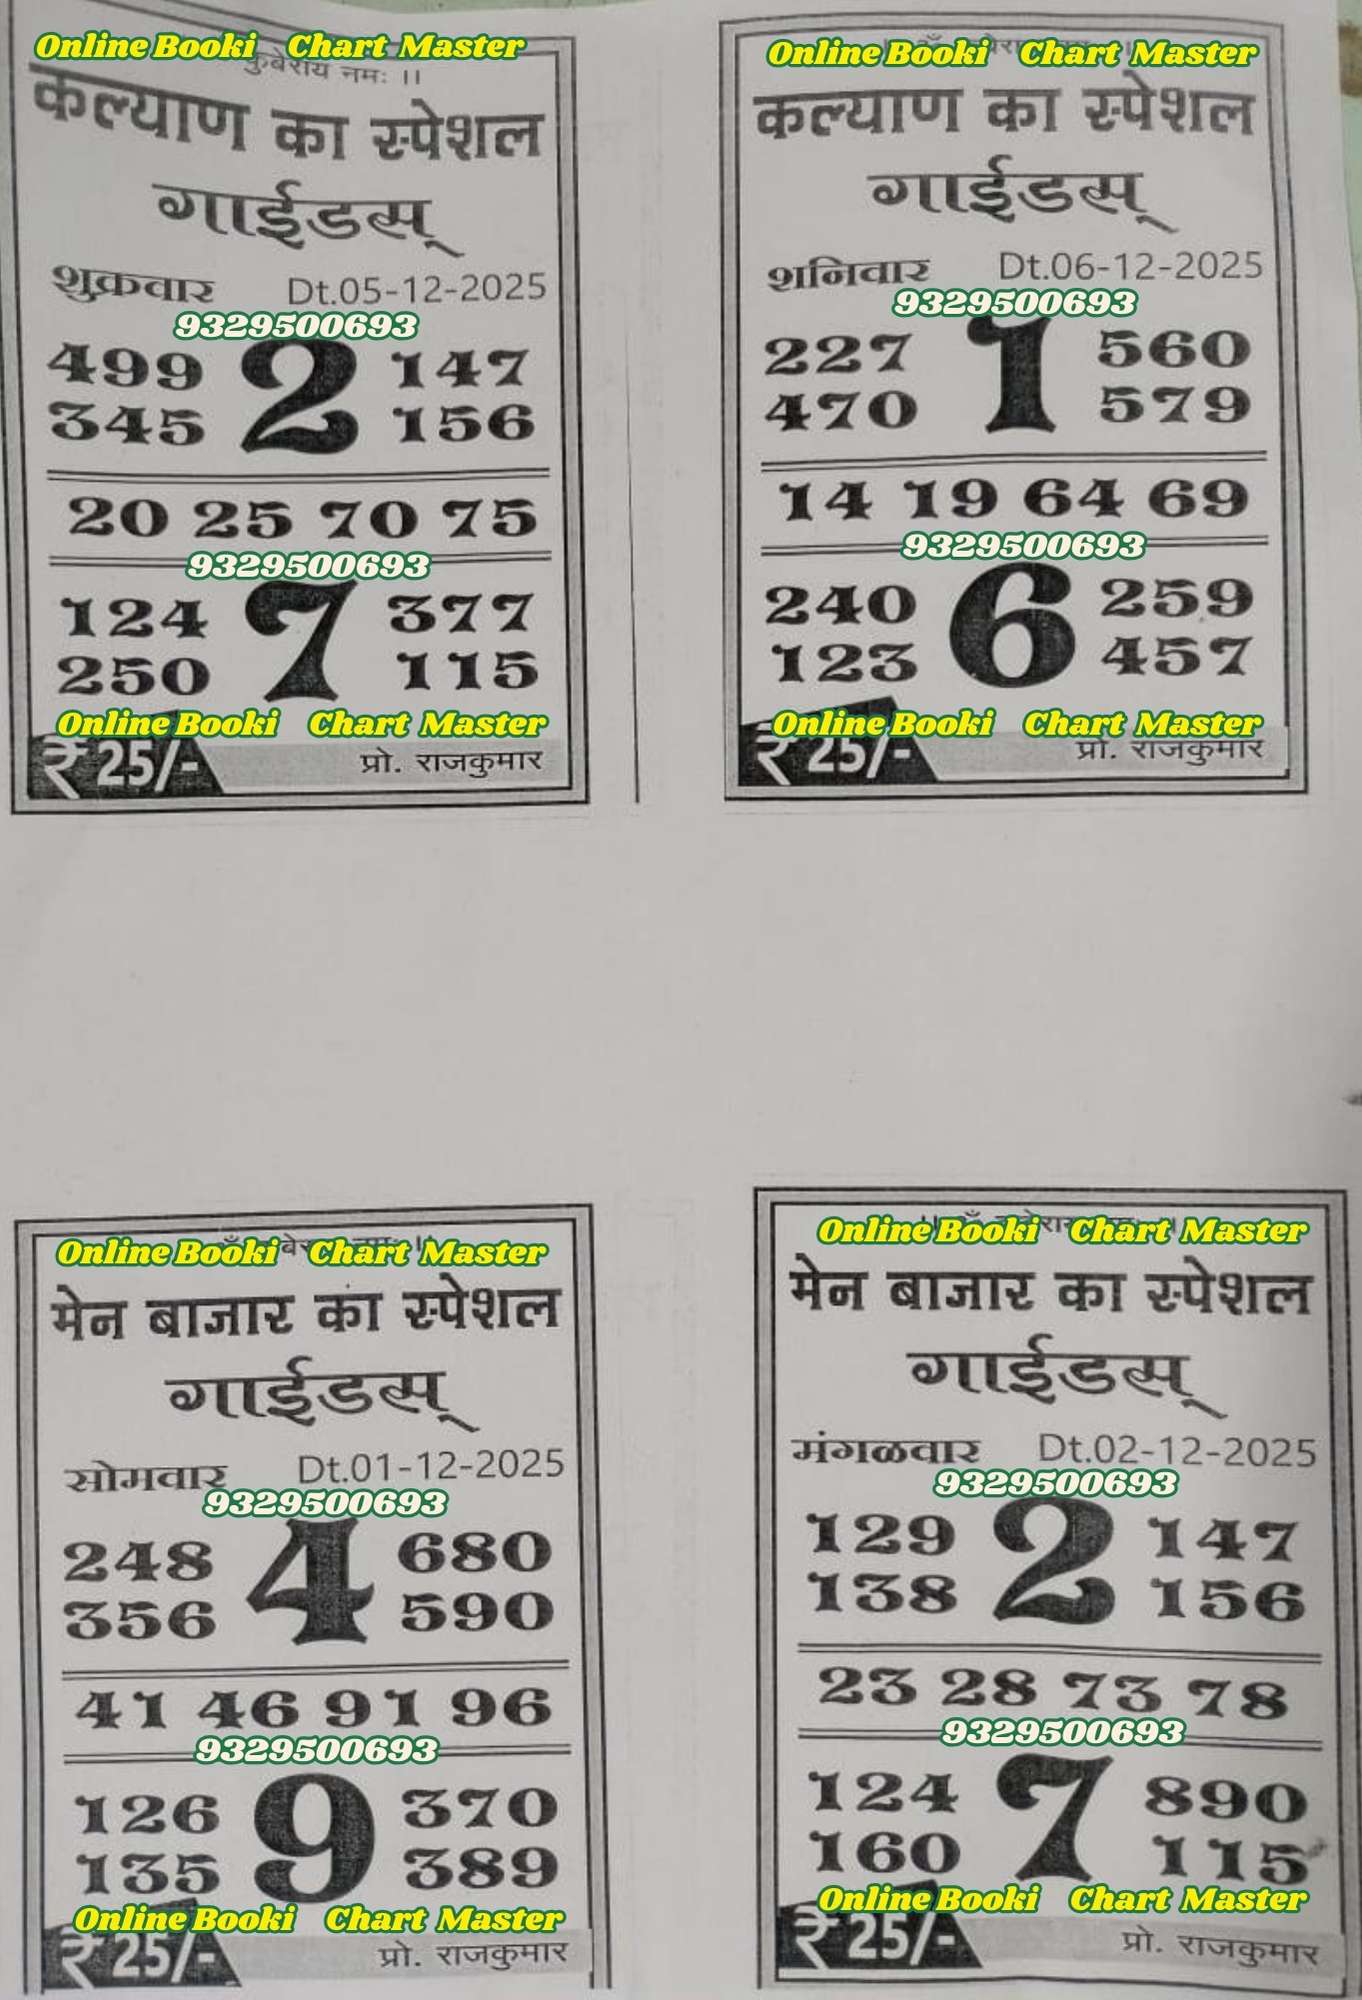 Online Booki Chart Master
कुबेराय नमः ।।
कल्याण का स्पेशल
गाईडस्
शुक्रवार Dt.05-12-2025
9329500693
499 2 147
345 156
20 25 70 75
9329500693
124 7 377
250 115
Online Booki Chart Master
₹ 25/- प्रो. राजकुमार
Online Booki Chart Master
कल्याण का स्पेशल
गाईडस्
शनिवार Dt.06-12-2025
9329500693
227 1 560
470 579
14 19 64 69
9329500693
240 6 259
123 457
Online Booki Chart Master
₹ 25/- प्रो. राजकुमार
Online Booki Chart Master
मेन बाजार का स्पेशल
गाईडस्
सोमवार Dt.01-12-2025
9329500693
248 4 680
356 590
41 46 91 96
9329500693
126 9 370
135 389
Online Booki Chart Master
₹ 25/- प्रो. राजकुमार
Online Booki Chart Master
मेन बाजार का स्पेशल
गाईडस्
मंगळवार Dt.02-12-2025
9329500693
129 2 147
138 156
23 28 73 78
9329500693
124 7 890
160 115
Online Booki Chart Master
₹ 25/- प्रो. राजकुमार